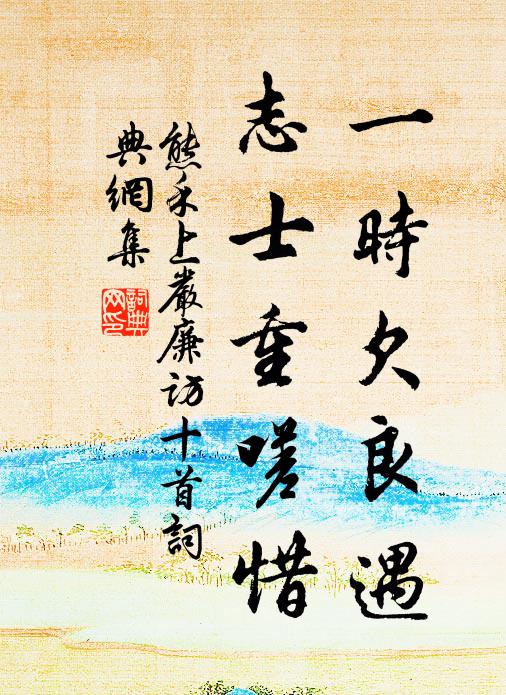 一時欠良遇
志士重嗟惜
熊禾上嚴廉訪十首詞
典網集
詞典網印